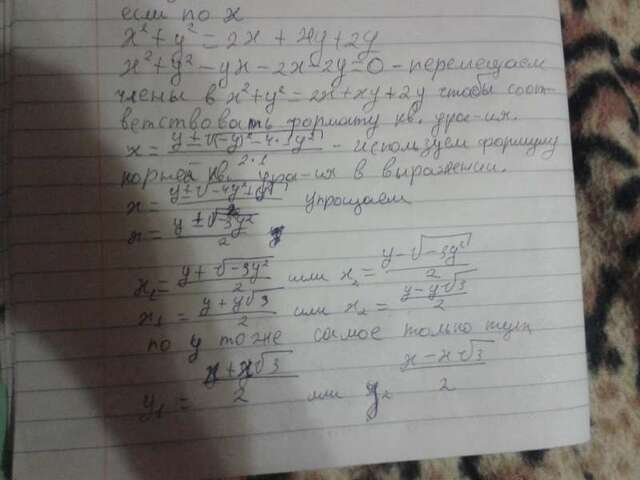 если по x
x² + y² = 2x + xy + 2y
x² + y² - yx - 2x - 2y = 0 - перемещаем
члены в x² + y² = 2x + xy + 2y чтобы соот-
ветствовать формату кв. урав-ия.
x = y ± √(-y)² - 4·1y² / 2·1 - используем формулу
корней кв. урав-ия в выражении.
x = y ± √-4y² + y² / 2 упрощаем
x = y ± √-3y² / 2
x₁ = y + √-3y² / 2 или x₂ = y - √-3y² / 2
x₁ = y + y√3 / 2 или x₂ = y - y√3 / 2
по y то же самое только тут
y₁ = x + x√3 / 2 или y₂ x - x√3 / 2